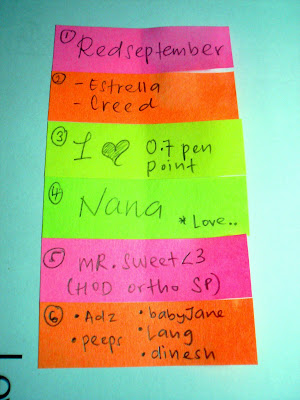 1 Redseptember
2 - Estrella
- Creed
3 I ♥ 0.7 pen
point
4 Nana
* Love..
5 MR. Sweet <3
(HOD ortho SP)
6 • Adz • babyJane
• peeps • Lang
• dinesh